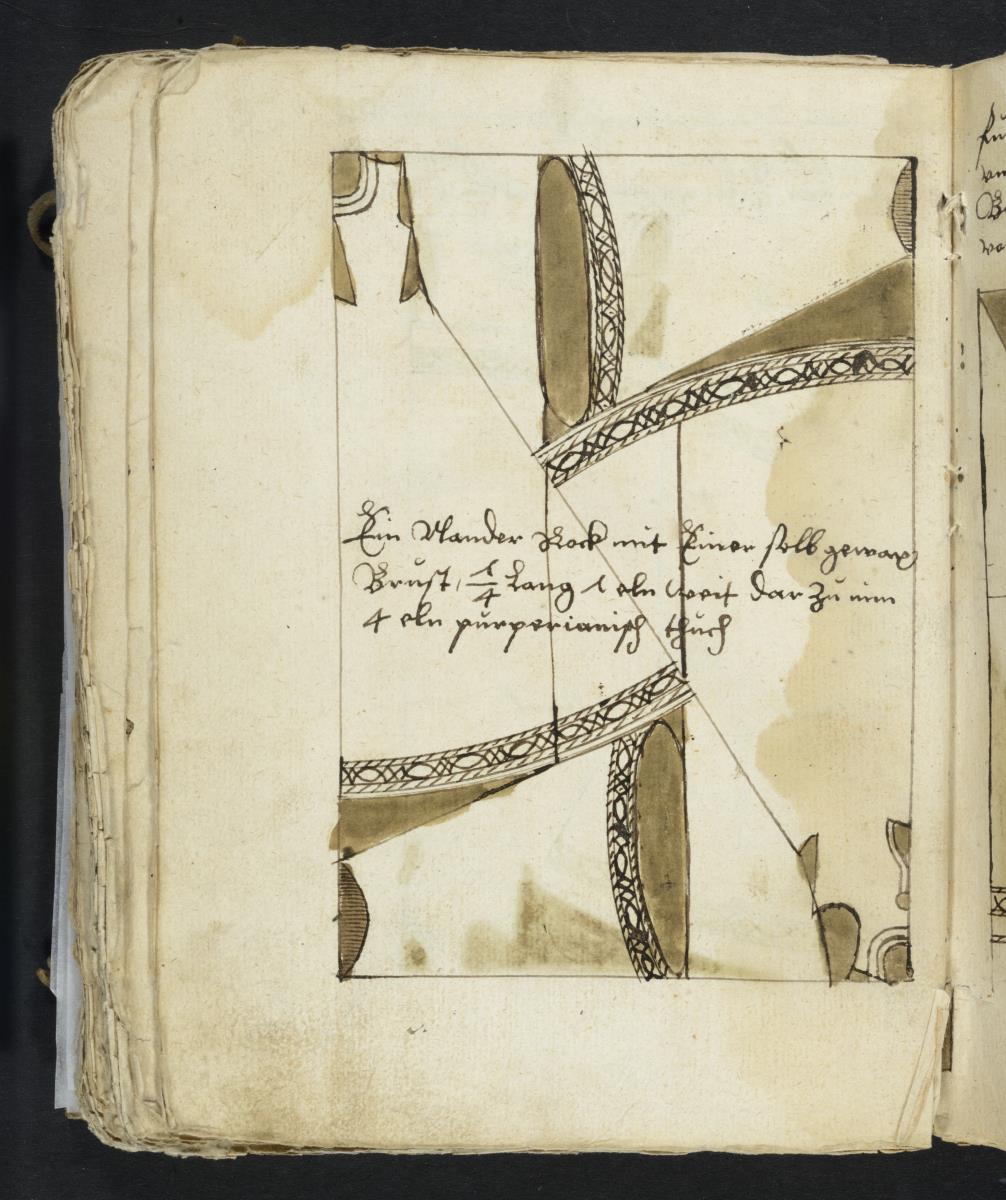 Ein Mander Rock mit Einer selb gewax
Brust, 1/4 Lang 1 eln weit dar Zu nim
4 eln purperianisch thuch